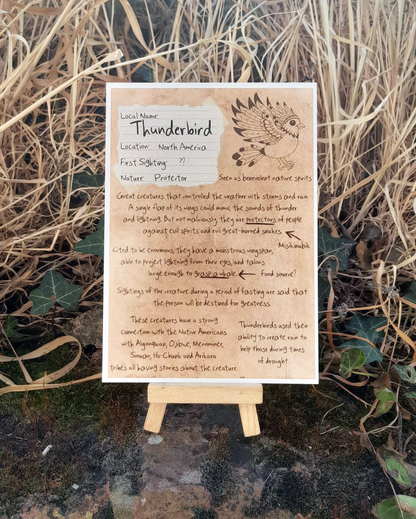 Local Name:
Thunderbird
Location: North America
First Sighting: ??
Nature: Protector
Seen as benevolent nature spirits
Great creatures that controlled the weather with storms and rain.
A single flap of its wings could mimic the sounds of thunder
and lightning. But not maliciously, they are protectors of people
against evil spirits and evil great-horned snakes
Mishibizhik
Cited to be enormous, they have a monstrous wingspan,
able to project lightning from their eyes and talons
large enough to grasp a whale. Food source?
Sightings of the creature during a period of fasting are said that
the person will be destined for greatness.
These creatures have a strong
connection with the Native Americans
with Algonquian, Ojibwe, Menominee,
Siouan, Ho-Chunk and Arikara
tribes all having stories about the creature.
Thunderbirds used their
ability to create rain to
help those during times
of draught.